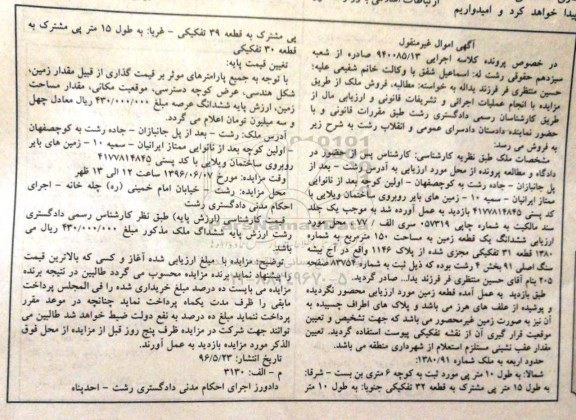 پیدا خواهد کرد و امیدواریم
آگهی اموال غیرمنقول
در خصوص پرونده کلاسه اجرایی ۹۴۰۰۸۵/۱۳ صادره از شعبه
سیزدهم حقوقی رشت له: اسماعیل شفق با وکالت خانم شفیعی علیه:
حسین منتظری فر فرزند یداله به خواسته: مطالبه، فروش ملک از طریق
مزایده با انجام عملیات اجرائی و تشریفات قانونی و ارزیابی مال از
طریق کارشناسان رسمی دادگستری رشت طبق مقررات قانونی و با
حضور نماینده دادستان دادسرای عمومی و انقلاب رشت به شرح زیر
به فروش می رسد:
مشخصات ملک طبق نظریه کارشناسی: کارشناس پس از حضور در
دادگاه و مطالعه پرونده از محل مورد ارزیابی به آدرس رشت - بعد از
پل جانبازان - جاده رشت به کوچصفهان - اولین کوچه بعد از نانوایی
ممتاز ایرانیان - سمیه ۱۰ - زمین های بایر روبروی ساختمان ویلایی با
کد پستی ۴۱۷۷۸۱۴۸۴۵ بازدید به عمل آورده شد به موجب یک جلد
سند مالکیت به شماره چاپی ۰۵۷۳۱۹ سری الف / ۷۷ - محل مورد
ارزیابی ششدانگ یک قطعه زمین به مساحت ۱۵۰ مترمربع به شماره
۱۳۸۰ قطعه ۳۱ تفکیکی مجزی شده از پلاک ۱۱۴۶ واقع در آج بیشه
سنگ اصلی ۹۱ بخش ۴ رشت بوده که ذیل ثبت به شماره ۸۳۷۵۴ صفحه
۲۰۵ بنام آقای حسین منتظری فر فرزند یدا... صادر گردید.
طبق بازدید به عمل آمده قطعه زمین مورد ارزیابی محصور نگردیده
و پوشیده از علف های هرز می باشد و پلاک های اطراف چسبیده به
آن نیز به صورت زمین غیرمحصور می باشد که جهت تشخیص و تعیین
موقعیت قرار گیری آن از نقشه تفکیکی پیوست استفاده گردید. تعیین
مقدار عقب نشینی مستلزم استعلام از شهرداری منطقه می باشد.
حدود اربعه به ملک شماره ۱۳۸۰/۹۱:
شمالا: به طول ۱۰ متر پی مورد ثبت به کوچه ۶ متری بن بست - شرقا:
به طول ۱۵ متر پی مشترک به قطعه ۳۲ تفکیکی جنوبا: به طول ۱۰ متر
پی مشترک به قطعه ۳۹ تفکیکی - غربا: به طول ۱۵ متر پی مشترک به
قطعه ۳۰ تفکیکی
تعیین قیمت پایه:
با توجه به جمیع پارامترهای موثر بر قیمت گذاری از قبیل مقدار زمین،
شکل هندسی، عرض کوچه دسترسی، موقعیت مکانی، مقدار مساحت
زمین، ارزش پایه ششدانگ عرصه مبلغ ۴۳۰/۰۰۰/۰۰۰ ریال معادل چهل
و سه میلیون تومان اعلام می گردد.
آدرس ملک: رشت - بعد از پل جانبازان - جاده رشت به کوچصفهان
- اولین کوچه بعد از نانوایی ممتاز ایرانیان - سمیه ۱۰ - زمین های بایر
روبروی ساختمان ویلایی با کد پستی ۴۱۷۷۸۱۴۸۴۵
وقت مزایده: مورخ ۱۳۹۶/۰۶/۰۷ ساعت ۱۲ الی ۱۳ ظهر
محل مزایده: رشت - خیابان امام خمینی (ره) جله خانه - اجرای
احکام مدنی دادگستری رشت
قیمت کارشناسی (ارزش پایه) طبق نظر کارشناس رسمی دادگستری
رشت ارزش پایه ششداگ ملک مذکور مبلغ ۴۳۰/۰۰۰/۰۰۰ ریال می
باشد.
توضیح: مزایده با مبلغ ارزیابی شده آغاز و کسی که بالاترین قیمت
را پیشنهاد نماید برنده مزایده محسوب می گردد طالبین در نتیجه برنده
مزایده می بایست ده درصد مبلغ خریداری شده را فی المجلس پرداخت
مابقی را ظرف مدت یکماه پرداخت نماید چنانچه در موعد مقرر
پرداخت ننماید مبلغ ده درصد به نفع دولت ضبط خواهد شد طالبین می
توانند جهت شرکت در مزایده ظرف پنج روز قبل از مزایده از محل فوق
الذکر مورد مزایده بازدید به عمل آورند.
تاریخ انتشار: ۹۶/۵/۲۳
م - الف: ۳۱۳۰
دادورز اجرای احکام مدنی دادگستری رشت - احدپناه